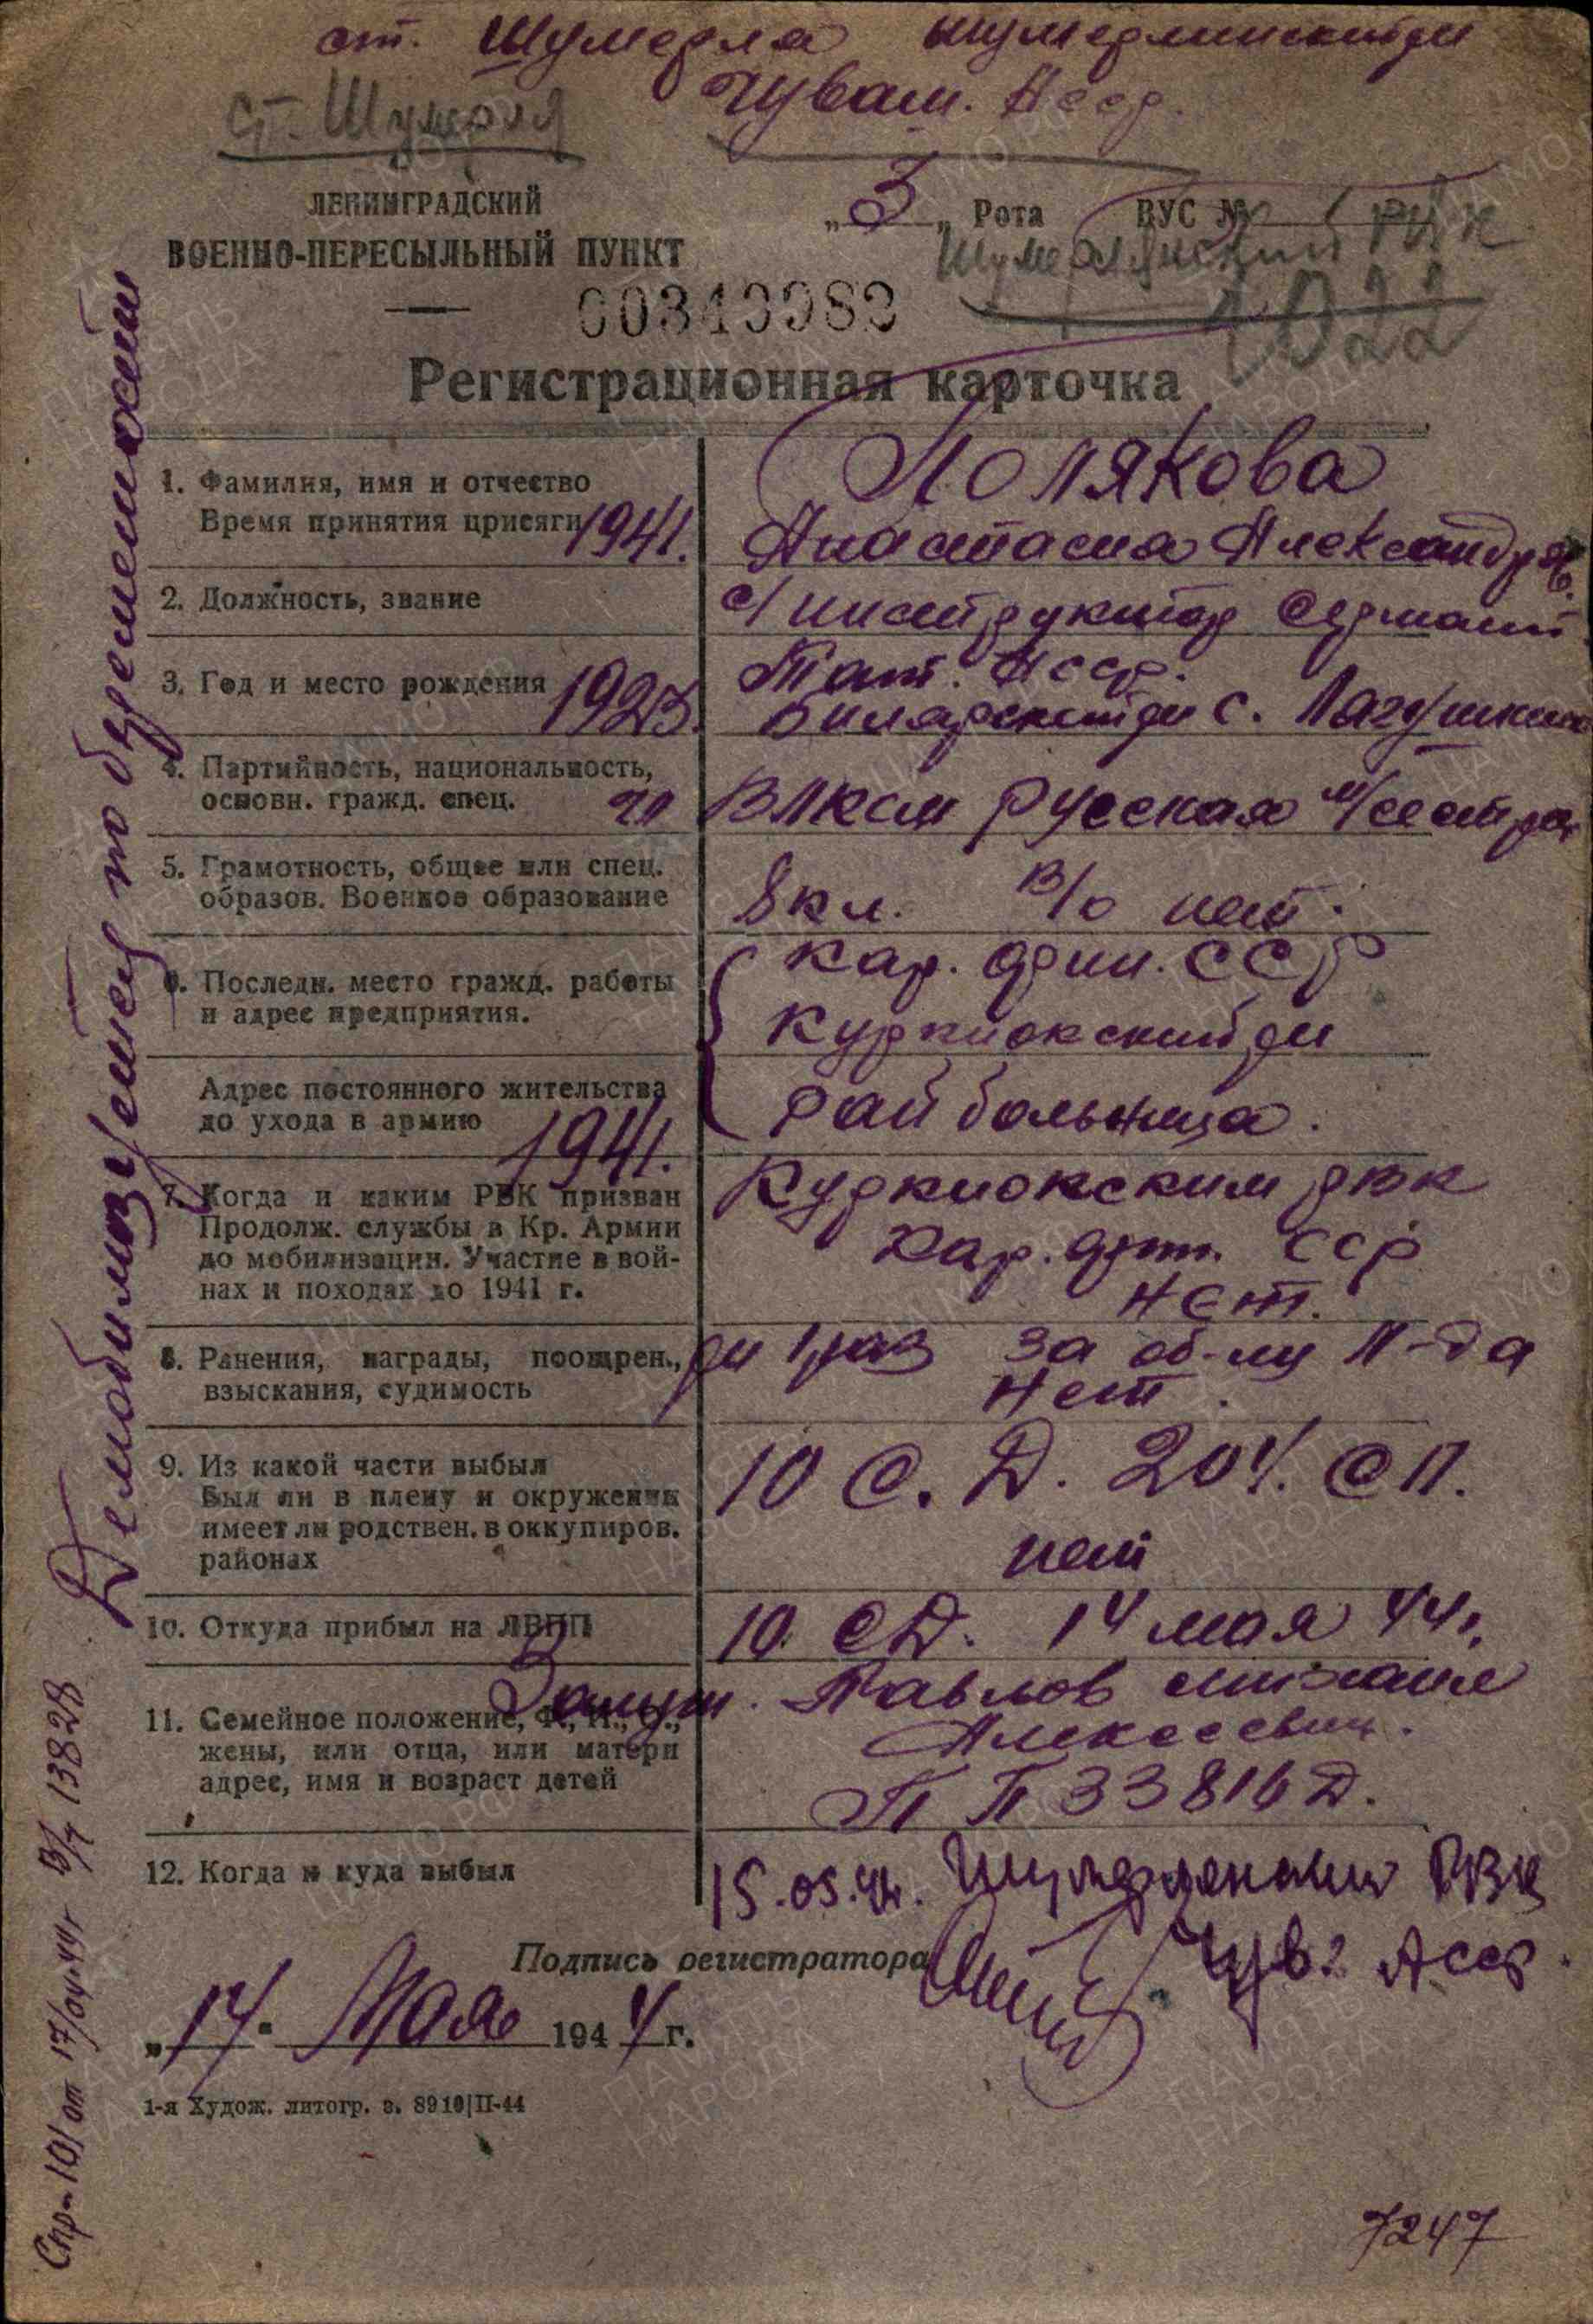 ст. Шумерля Шумерлинский р-н
Чуваш. АССР.
ст. Шумерля
ЛЕНИНГРАДСКИЙ
ВОЕННО-ПЕРЕСЫЛЬНЫЙ ПУНКТ
„3„ Рота ВУС №
Шумерлинский РВК
1022
Регистрационная карточка
1. Фамилия, имя и отчество
Время принятия присяги 1941.
Полякова
Анастасия Александров.
2. Должность, звание
с/инструктор Сержант
3. Год и место рождения 1923.
Тат. АССР.
Билярский р-н с.
4. Партийность, национальность,
основн. гражд. спец.
чл ВЛКСМ Русская м/сестра
5. Грамотность, общее или спец.
образов. Военное образование
8 кл. в/о нет.
6. Последн. место гражд. работы
и адрес предприятия.
Кар. фин. ССР
Куркиокский р-н
Адрес постоянного жительства
до ухода в армию
Рай больница.
7. Когда и каким РВК призван
Продолж. службы в Кр. Армии
до мобилизации. Участие в вой-
нах и походах до 1941 г.
1941. Куркиокским РВК
Кар. фин. ССР
Нет.
8. Ранения, награды, поощрен.,
взыскания, судимость
р-н 1 раз за об-му Л-да
Нет.
9. Из какой части выбыл
Был ли в плену и окружении
имеет ли родствен. в оккупиров.
районах
10 С. Д. 204. СП.
нет
10. Откуда прибыл на ЛВПП
10 СД. 14 мая 44г.
11. Семейное положение, Ф., И., О.,
жены, или отца, или матери
адрес, имя и возраст детей
Замуж. Павлов Михаил
Алексеевич.
ПП 33816 Д.
12. Когда и куда выбыл
15.05.44. Шумерленский РВК
Чув. АССР.
Подпись регистратора
„14" Мая 1944 г.
1-я Худож. литогр. з. 8910|II-44
7247
Демобилизуется по беременности
Спр-101 от 17/04.44г в/ч 13828